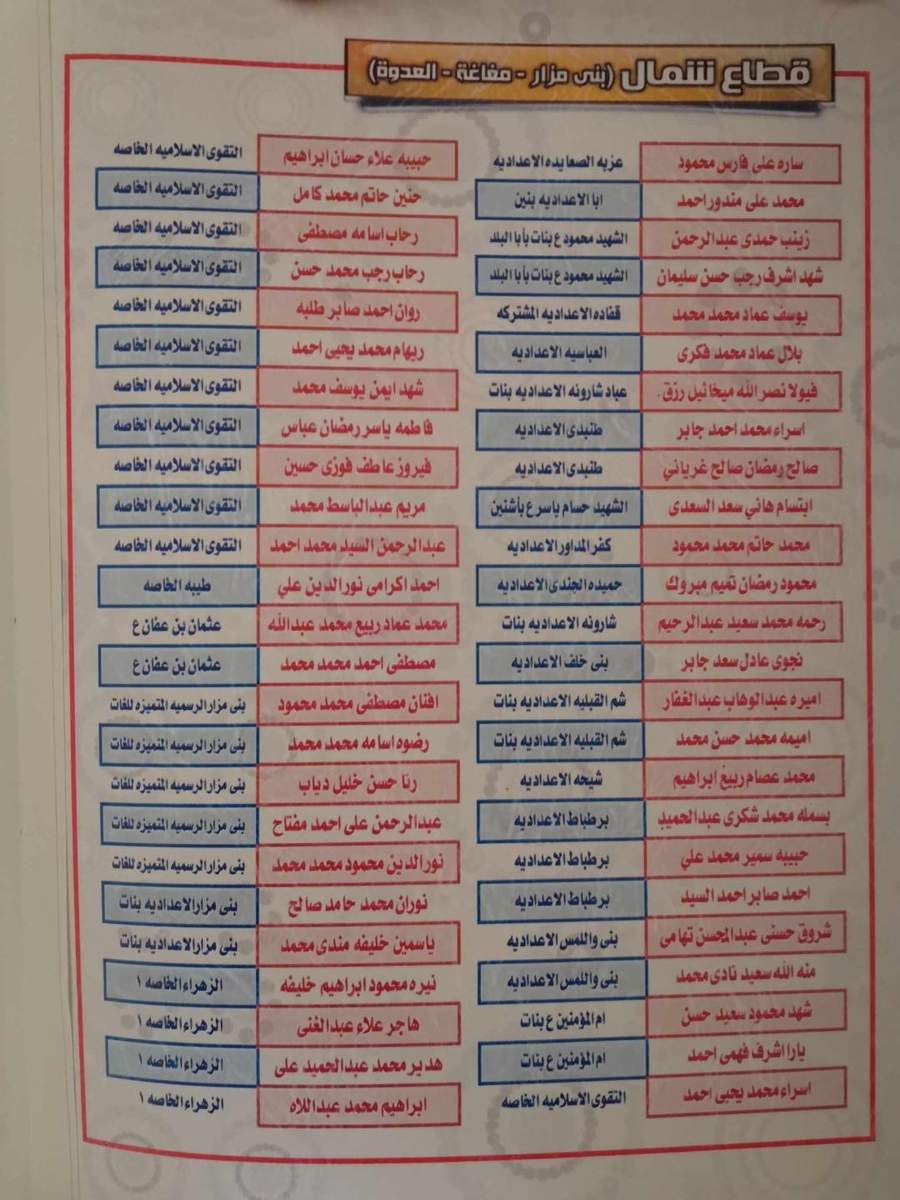 قطاع شمال (بنى مزار - مغاغة - العدوة)
ساره على فارس محمود عزبه الصعايده الاعداديه
محمد على مندور احمد ابا الاعداديه بنين
زينب حمدى عبدالرحمن الشهيد محمود ع بنات بأبا البلد
شهد اشرف رجب حسن سليمان الشهيد محمود ع بنات بأبا البلد
يوسف عماد محمد محمد قفاده الاعداديه المشتركه
بلال عماد محمد فكرى العباسيه الاعداديه
فيولا نصر الله ميخائيل رزق. عباد شارونه الاعداديه بنات
اسراء محمد احمد جابر طنبدى الاعداديه
صالح رمضان صالح غرياني طنبدى الاعداديه
ابتسام هاني سعد السعدى الشهيد حسام ياسر ع بأشنين
محمد حاتم محمد محمود كفر المداور الاعداديه
محمود رمضان تميم مبروك حميده الجندى الاعداديه
رحمه محمد سعيد عبدالرحيم شارونه الاعداديه بنات
نجوى عادل سعد جابر بنى خلف الاعداديه
اميره عبدالوهاب عبدالغفار شم القبليه الاعداديه بنات
اميمه محمد حسن محمد شم القبليه الاعداديه بنات
محمد عصام ربيع ابراهيم شيحه الاعداديه
بسمله محمد شكرى عبدالحميد برطباط الاعداديه
حبيبه سمير محمد علي برطباط الاعداديه
احمد صابر احمد السيد برطباط الاعداديه
شروق حسنى عبدالمحسن تهامى بنى واللمس الاعداديه
منه الله سعيد نادى محمد بنى واللمس الاعداديه
شهد محمود سعيد حسن ام المؤمنين ع بنات
يارا اشرف فهمى احمد ام المؤمنين ع بنات
اسراء محمد يحيى احمد التقوى الاسلاميه الخاصه
حبيبه علاء حسان ابراهيم التقوى الاسلاميه الخاصه
حنين حاتم محمد كامل التقوى الاسلاميه الخاصه
رحاب اسامه مصطفى التقوى الاسلاميه الخاصه
رحاب رجب محمد حسن التقوى الاسلاميه الخاصه
روان احمد صابر طلبه التقوى الاسلاميه الخاصه
ريهام محمد يحيى احمد التقوى الاسلاميه الخاصه
شهد ايمن يوسف محمد التقوى الاسلاميه الخاصه
فاطمه ياسر رمضان عباس التقوى الاسلاميه الخاصه
فيروز عاطف فوزى حسين التقوى الاسلاميه الخاصه
مريم عبدالباسط محمد التقوى الاسلاميه الخاصه
عبدالرحمن السيد محمد احمد التقوى الاسلاميه الخاصه
احمد اكرامى نورالدين علي طيبه الخاصه
محمد عماد ربيع محمد عبدالله عثمان بن عفان ع
مصطفى احمد محمد محمد عثمان بن عفان ع
افنان مصطفى محمد محمود بنى مزار الرسميه المتميزه للغات
رضوه اسامه محمد محمد بنى مزار الرسميه المتميزه للغات
رنا حسن خليل دياب بنى مزار الرسميه المتميزه للغات
عبدالرحمن على احمد مفتاح بنى مزار الرسميه المتميزه للغات
نورالدين محمود محمد محمد بنى مزار الرسميه المتميزه للغات
نوران محمد حامد صالح بنى مزار الاعداديه بنات
ياسمين خليفه مندى محمد بنى مزار الاعداديه بنات
نيره محمود ابراهيم خليفه الزهراء الخاصه ١
هاجر علاء عبدالغنى الزهراء الخاصه ١
هدير محمد عبدالحميد على الزهراء الخاصه ١
ابراهيم محمد عبداللاه الزهراء الخاصه ١